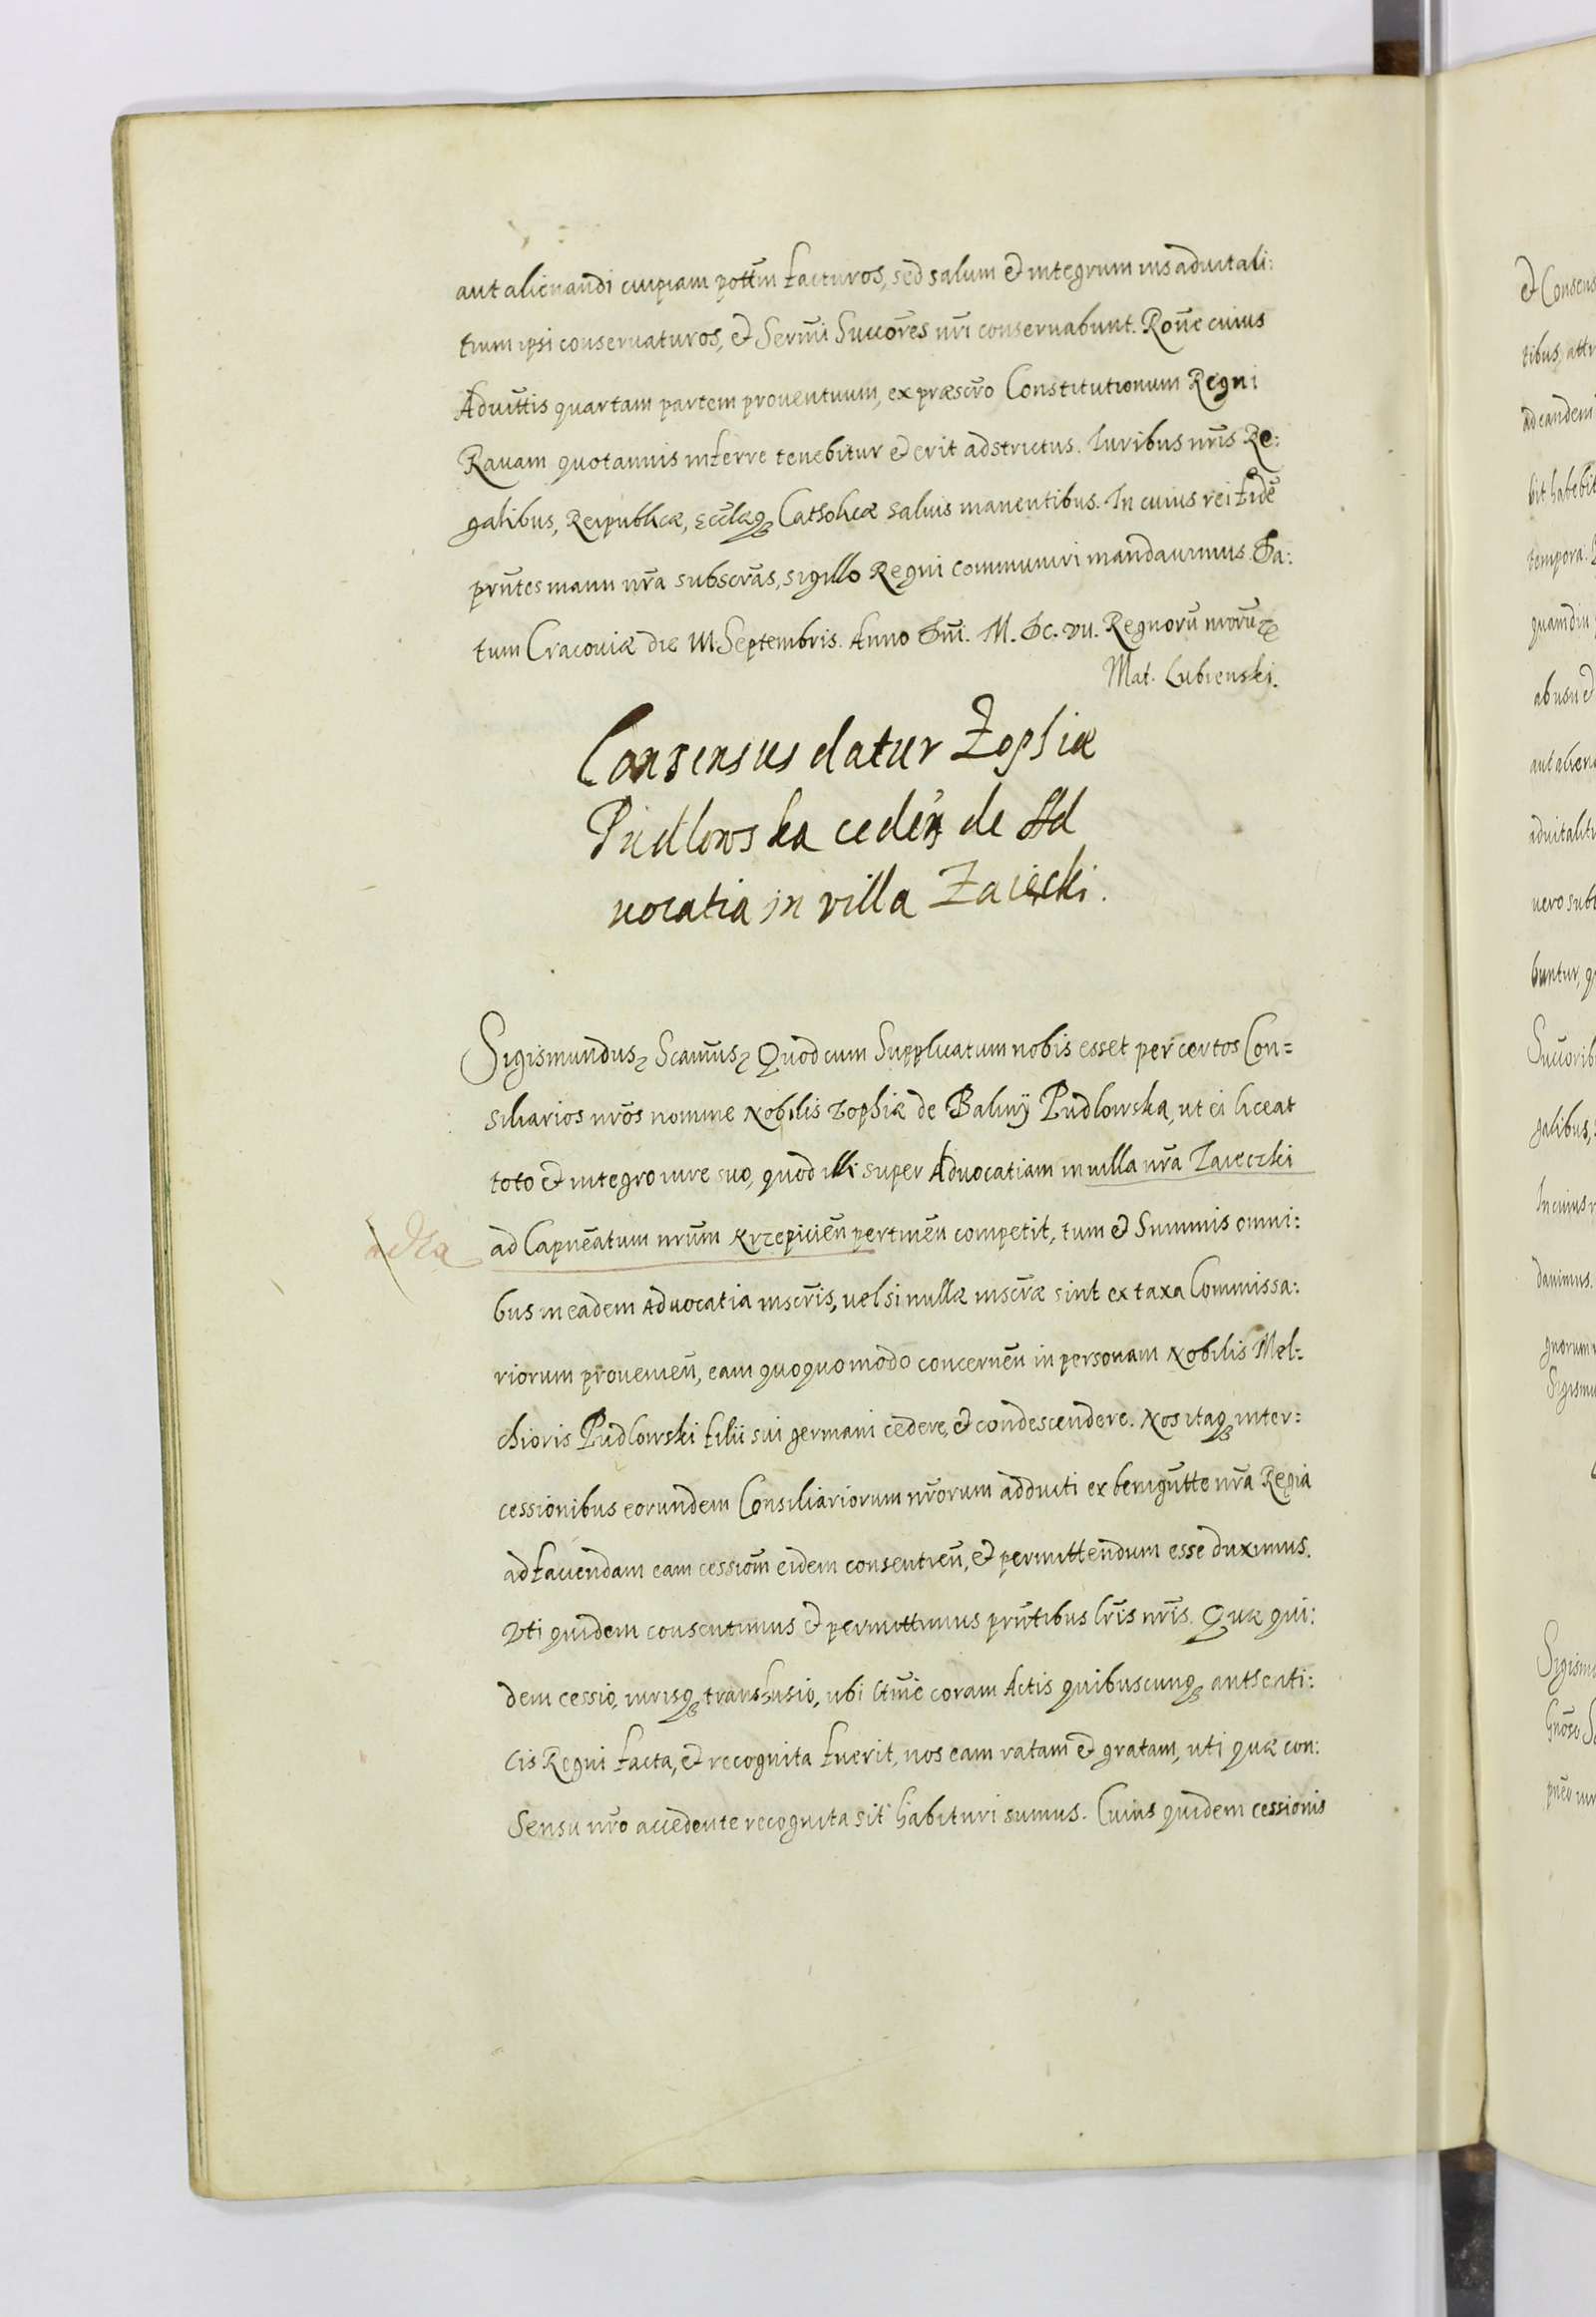 aut alienandi cuipiam pottm̄ facturos, sed saluum et integrum ius aduitali:
tium ipsi conseruaturos, et Serm̄i Succōres nr̄i conseruabunt. Rōne cuius
Aduittis quartam partem prouentuum, ex præscr̄o Constitutionum Regni
Rauam quotannis inferre tenebitur et erit adstrictus. Iuribus nr̄is Re:
galibus, Reipublicæ, Eccl̄æq₃ Catholicæ saluis manentibus. In cuius rei fidē
prn̄tes manu nr̄a subscr̄as, sigillo Regni communiri mandauimus. Da:
tum Cracouiæ die III Septembris. Anno Dn̄i. M. DC. VII. Regnorū nrorū
Mat. Lubienski.
Consensus datur Zophiæ
Pudlowska ceden̄ de Ad
uocatia in villa Zaięcki.
Sigismundus Scām̄us Quod cum Supplicatum nobis esset per certos Con=
siliarios nr̄os nomine Nobilis Zophiæ de Balinÿ Pudlowska, ut ei liceat
toto et integro iure suo, quod illi super Aduocatiam in uilla nr̄a Zaieczki
ad Capnēatum nrūm Krzepicien̄ pertinen̄ competit, tum et Summis omni:
bus in eadem Aduocatia inscr̄is, uel si nullæ inscr̄æ sint ex taxa Commissa:
riorum prouenien̄, eam quoquomodo concernen̄ in personam Nobilis Mel:
chioris Pudlowski filii sui germani cedere, et condescendere. Nos itaq₃ inter:
cessionibus eorundem Consiliariorum nr̄orum adducti ex benign̄tte nr̄a Regia
ad faciendam eam cessiōm eidem consentien̄, et permittendum esse duximus.
Vti quidem consentimus et permittimus prn̄tibus lr̄is nr̄is. Quæ qui:
dem cessio, iurisq₃ transfusio, ubi ltm̄e coram Actis quibuscunq₃ authenti:
cis Regni facta, et recognita fuerit, nos eam ratam et gratam, uti quæ con:
sensu nr̄o accedente recognita sit habituri sumus. Cuius quidem cessionis
et Consens
tibus, att
ad eandem
bit habebit
tempora.
quamdiu
ab usu et
aut alien
aduitalit
uero sub
buntur, q
Succorib
galibus,
In cuius r
dauimus.
gnorum
Sigismu
Sigismu
pnēo iur